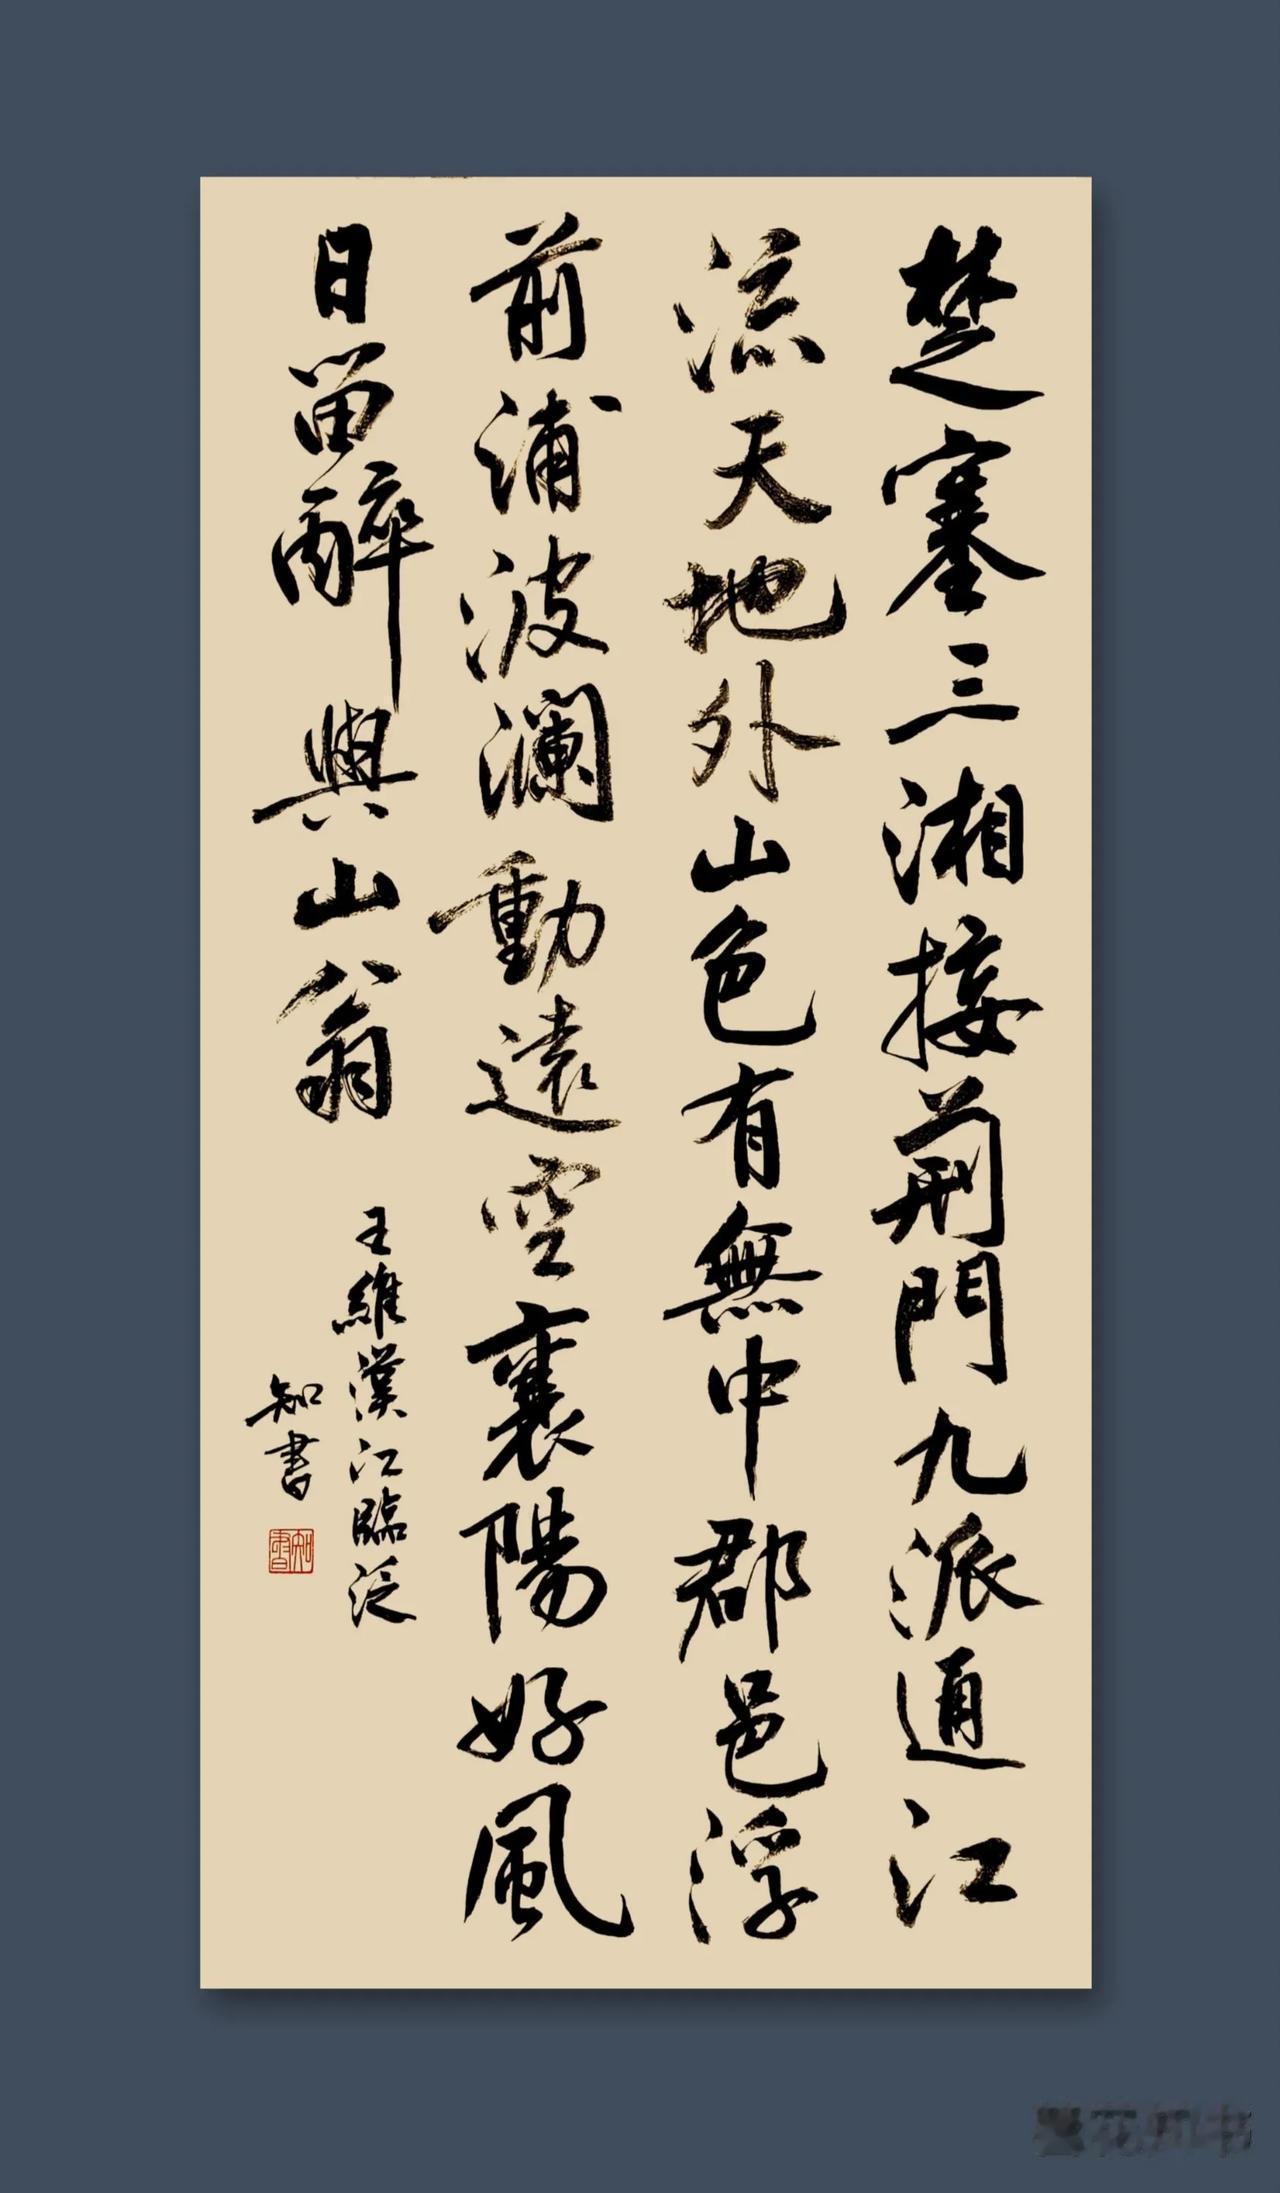 楚塞三湘接荊門九派通江
流天地外山色有無中郡邑浮
前浦波瀾動遠空襄陽好風
日留醉與山翁
王維漢江臨泛
知書
知書